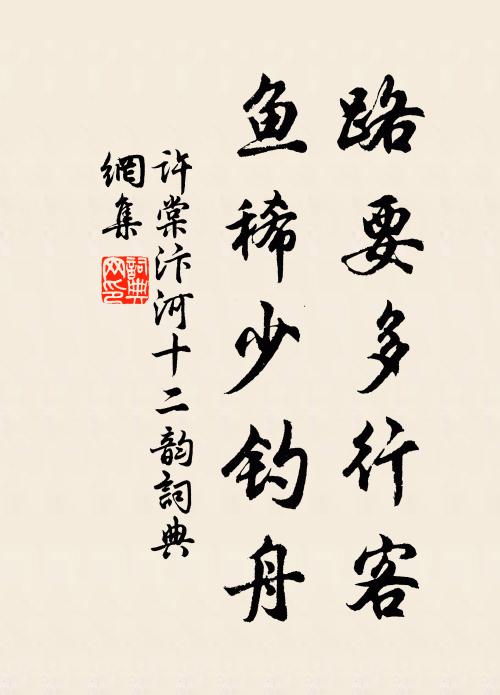 路要多行客
鱼稀少钓舟
许棠汴河十二韵詞典
網集
詞典
网印